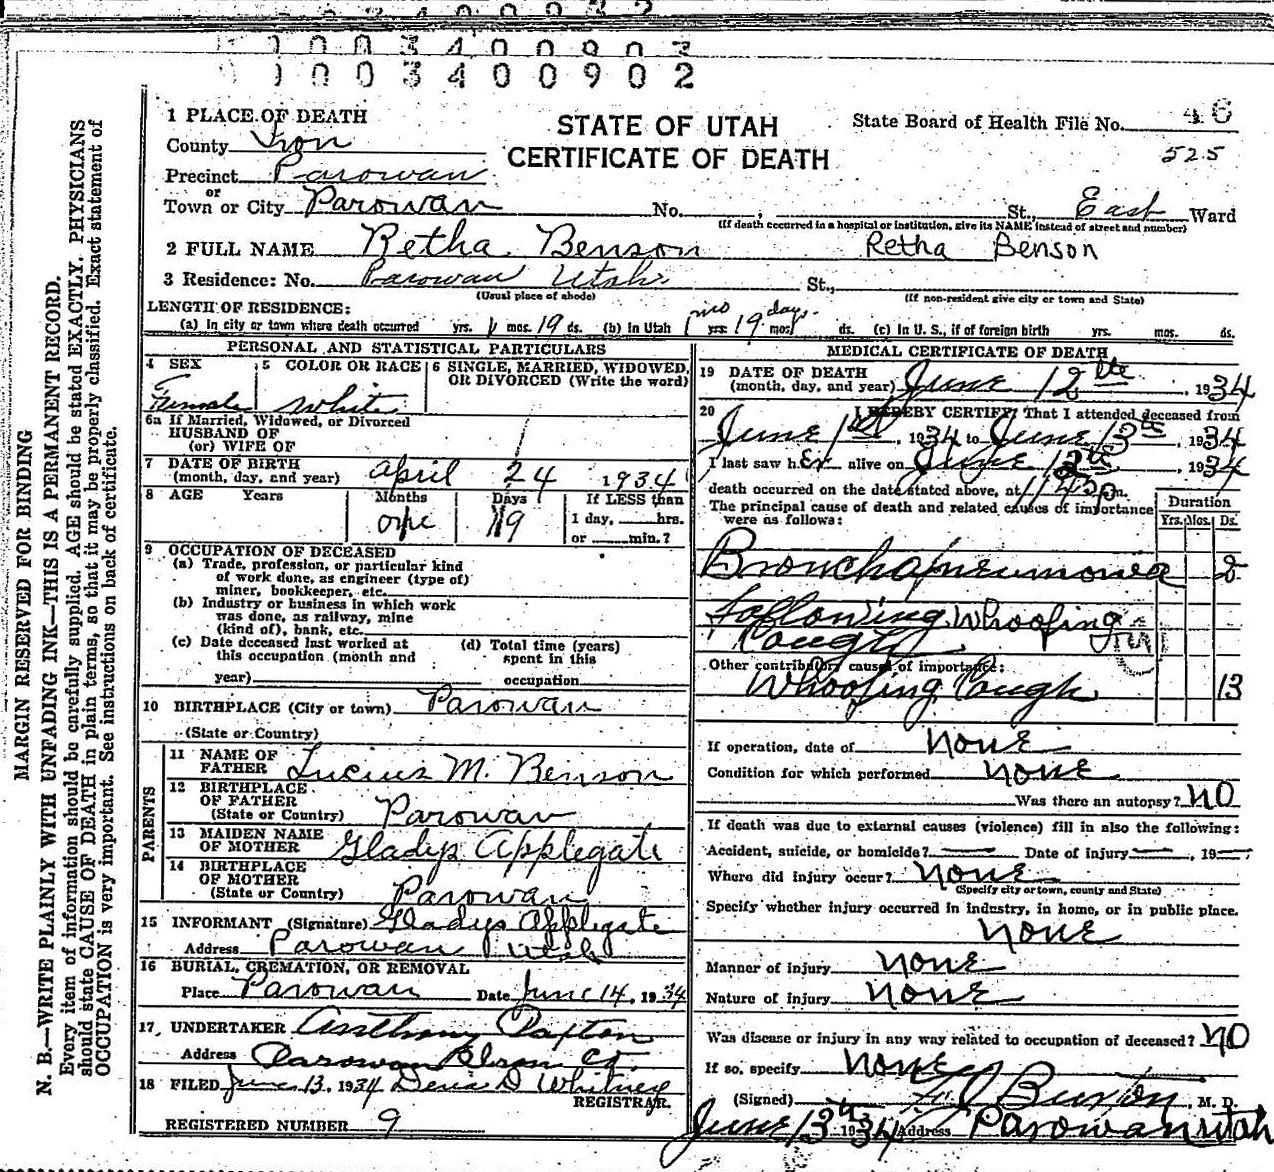 0003400902
1 PLACE OF DEATH
STATE OF UTAH
CERTIFICATE OF DEATH
State Board of Health File No. 46
525
County Iron
Precinct Parowan
or
Town or City Parowan No. , St., East Ward
(If death occurred in a hospital or institution, give its NAME instead of street and number)
2 FULL NAME Retha Benson Retha Benson
3 Residence: No. Parowan Utah. St.,
(Usual place of abode) (If non-resident give city or town and State)
LENGTH OF RESIDENCE:
(a) In city or town where death occurred yrs. 1 mos. 19 ds. (b) In Utah 1 mo yrs. 19 days. mos. ds. (c) In U. S., if of foreign birth yrs. mos. ds.
PERSONAL AND STATISTICAL PARTICULARS
4 SEX 5 COLOR OR RACE 6 SINGLE, MARRIED, WIDOWED, OR DIVORCED (Write the word)
Female white
6a If Married, Widowed, or Divorced
HUSBAND OF
(or) WIFE OF
7 DATE OF BIRTH
(month, day, and year) April 24 1934
8 AGE Years Months Days If LESS than
one 19 1 day, hrs.
or min.?
9 OCCUPATION OF DECEASED
(a) Trade, profession, or particular kind
of work done, as engineer (type of)
miner, bookkeeper, etc.
(b) Industry or business in which work
was done, as railway, mine
(kind of), bank, etc.
(c) Date deceased last worked at (d) Total time (years)
this occupation (month and spent in this
year) occupation
10 BIRTHPLACE (City or town) Parowan
(State or Country)
PARENTS
11 NAME OF
FATHER Lucius M. Benson
12 BIRTHPLACE
OF FATHER
(State or Country) Parowan
13 MAIDEN NAME
OF MOTHER Gladys Applegate
14 BIRTHPLACE
OF MOTHER
(State or Country) Parowan
15 INFORMANT (Signature) Gladys Applegate
Address Parowan Utah
16 BURIAL, CREMATION, OR REMOVAL
Place Parowan Date June 14, 1934
17, UNDERTAKER Anthony Paxton
Address Parowan
18 FILED June 13, 1934 D Whitney
REGISTRAR.
REGISTERED NUMBER 9
MEDICAL CERTIFICATE OF DEATH
19 DATE OF DEATH
(month, day, and year) June 12th, 1934
20 I HEREBY CERTIFY, That I attended deceased from
June 1st, 1934 to June 13th, 1934
I last saw her alive on June 12th, 1934
death occurred on the date stated above, at 1145 p m.
The principal cause of death and related causes of importance
were as follows:
Duration
Yrs. Mos. Ds.
Bronchopneumonia 2
Following Whoofing
Cough
Other contributory causes of importance:
Whoofing Cough 13
If operation, date of none
Condition for which performed none
Was there an autopsy? NO
If death was due to external causes (violence) fill in also the following:
Accident, suicide, or homicide? — Date of injury —, 19—
Where did injury occur? none
(Specify city or town, county and State)
Specify whether injury occurred in industry, in home, or in public place.
none
Manner of injury none
Nature of injury none
Was disease or injury in any way related to occupation of deceased? NO
If so, specify none
(Signed) Burton, M. D.
June 13th 1934 Address Parowan Utah
MARGIN RESERVED FOR BINDING
N. B.—WRITE PLAINLY WITH UNFADING INK—THIS IS A PERMANENT RECORD.
Every item of information should be carefully supplied. AGE should be stated EXACTLY. PHYSICIANS
should state CAUSE OF DEATH in plain terms, so that it may be properly classified. Exact statement of
OCCUPATION is very important. See instructions on back of certificate.